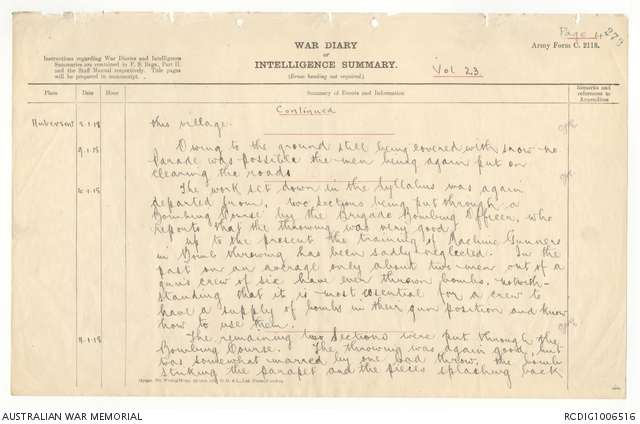 Page 4
273
WAR DIARY
or
INTELLIGENCE SUMMARY.
(Erase heading not required.)
Army Form C. 2118.
Instructions regarding War Diaries and Intelligence
Summaries are contained in F. S. Regs., Part II.
and the Staff Manual respectively. Title pages
will be prepared in manuscript.
Vol 23
Place
Date
Hour
Summary of Events and Information
Remarks and
references to
Appendices
Continued
8.1.18 this village.
9.1.18 Owing to the ground still being covered with snow no
parade was possible the men being again put on
clearing the roads
10.1.18 The work set down in the Syllabus was again
departed from, two sections being put through a
Bombing Course by the Brigade Bombing Officer, who
reports that the throwing was very good.
Up to the present the training of Machine Gunners
in Bomb throwing has been sadly neglected. In the
past on an average only about two men out of a
gun's crew of six have ever thrown bombs, notwith-
standing that it is most essential for a crew to
have a supply of bombs in their gun position and know
how to use them.
11.1.18 The remaining two sections were put through the
Bombing Course. The throwing was again good, but
was somewhat marred by one bad throw, the bomb
striking the parapet and the pieces splashing back
AUSTRALIAN WAR MEMORIAL
RCDIG1006516